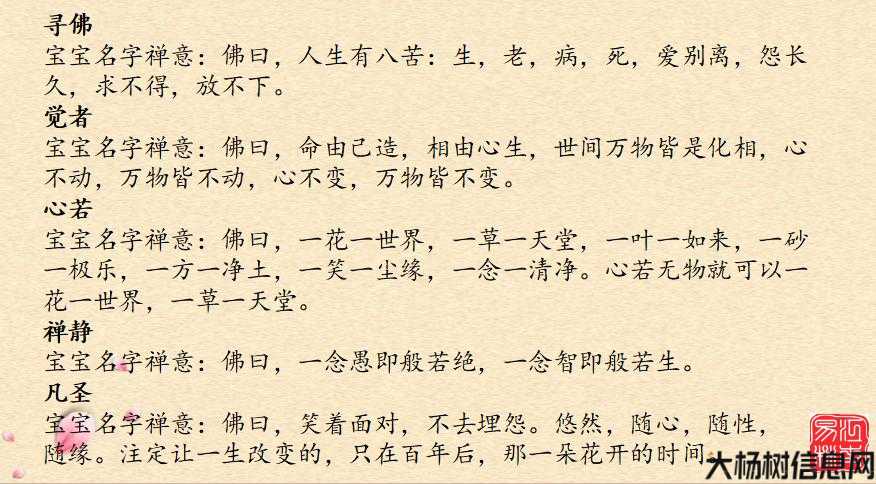 寻佛
宝宝名字禅意：佛曰，人生有八苦：生，老，病，死，爱别离，怨长
久，求不得，放不下。
觉者
宝宝名字禅意：佛曰，命由己造，相由心生，世间万物皆是化相，心
不动，万物皆不动，心不变，万物皆不变。
心若
宝宝名字禅意：佛曰，一花一世界，一草一天堂，一叶一如来，一砂
一极乐，一方一净土，一笑一尘缘，一念一清净。心若无物就可以一
花一世界，一草一天堂。
禅静
宝宝名字禅意：佛曰，一念愚即般若绝，一念智即般若生。
凡圣
宝宝名字禅意：佛曰，笑着面对，不去埋怨。悠然，随心，随性，
随缘。注定让一生改变的，只在百年后，那一朵花开的时间
大杨树信息网